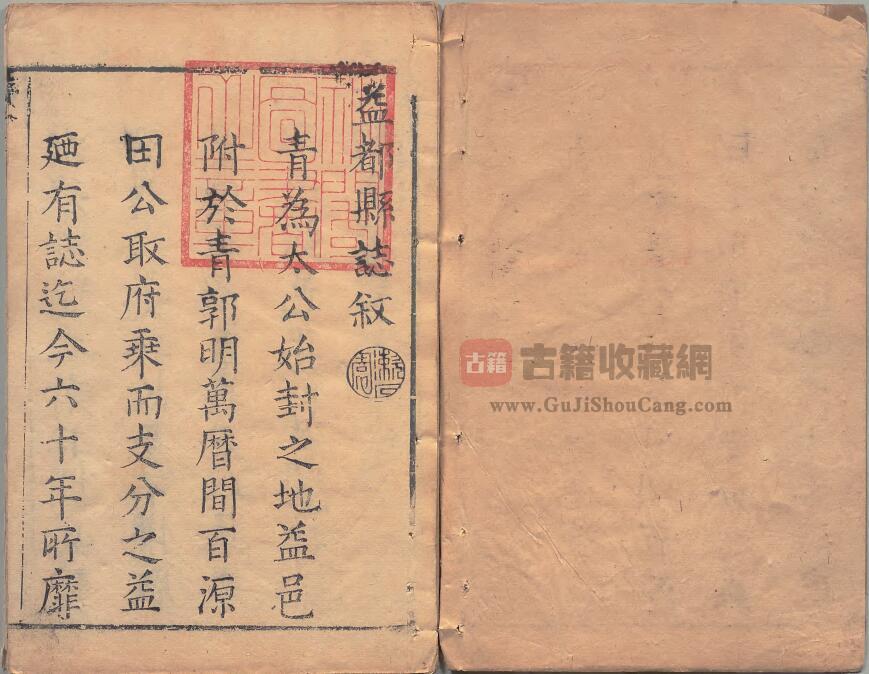 益都縣誌敘
青為太公始封之地益邑
附於青郭明萬曆間百源
田公取府乘而支分之益
廼有誌迄今六十年所靡
古籍
古籍收藏網
www.GuJiShouCang.com